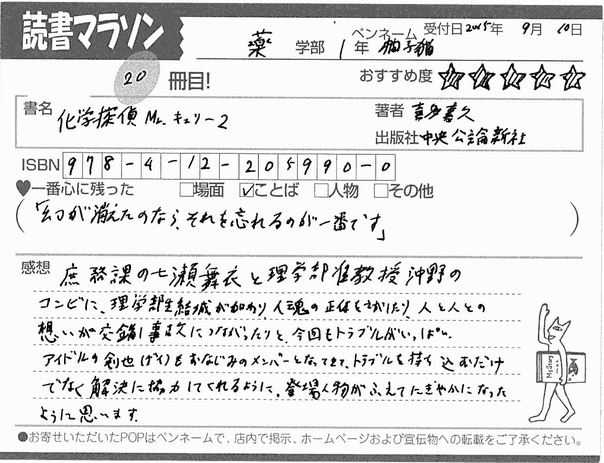 読書マラソン
受付日2015年 9月 10日
薬 学部 1年 ペンネーム 柚子猫
20 冊目!
おすすめ度 ☆☆☆☆☆
書名 化学探偵Mr.キュリー2
著者 喜多喜久
出版社 中央公論新社
ISBN 978-4-12-205990-0
♥一番心に残った □場面 ☑ことば □人物 □その他
「幻が消えたのなら、それを忘れるのが一番です」
感想 庶務課の七瀬舞衣と理学部准教授沖野の
コンビに、理学部生結城が加わり人魂の正体をさがしたり、人と人との
想いが交錯し事故につながったりと、今回もトラブルがいっぱい。
アイドルの剣也もおなじみのメンバーとなってきて、トラブルを持ち込むだけ
でなく解決に協力してくれるように、登場人物がふえてにぎやかになった
ように思います。
●お寄せいただいたPOPはペンネームで、店内で掲示、ホームページおよび宣伝物への転載をご了承ください。